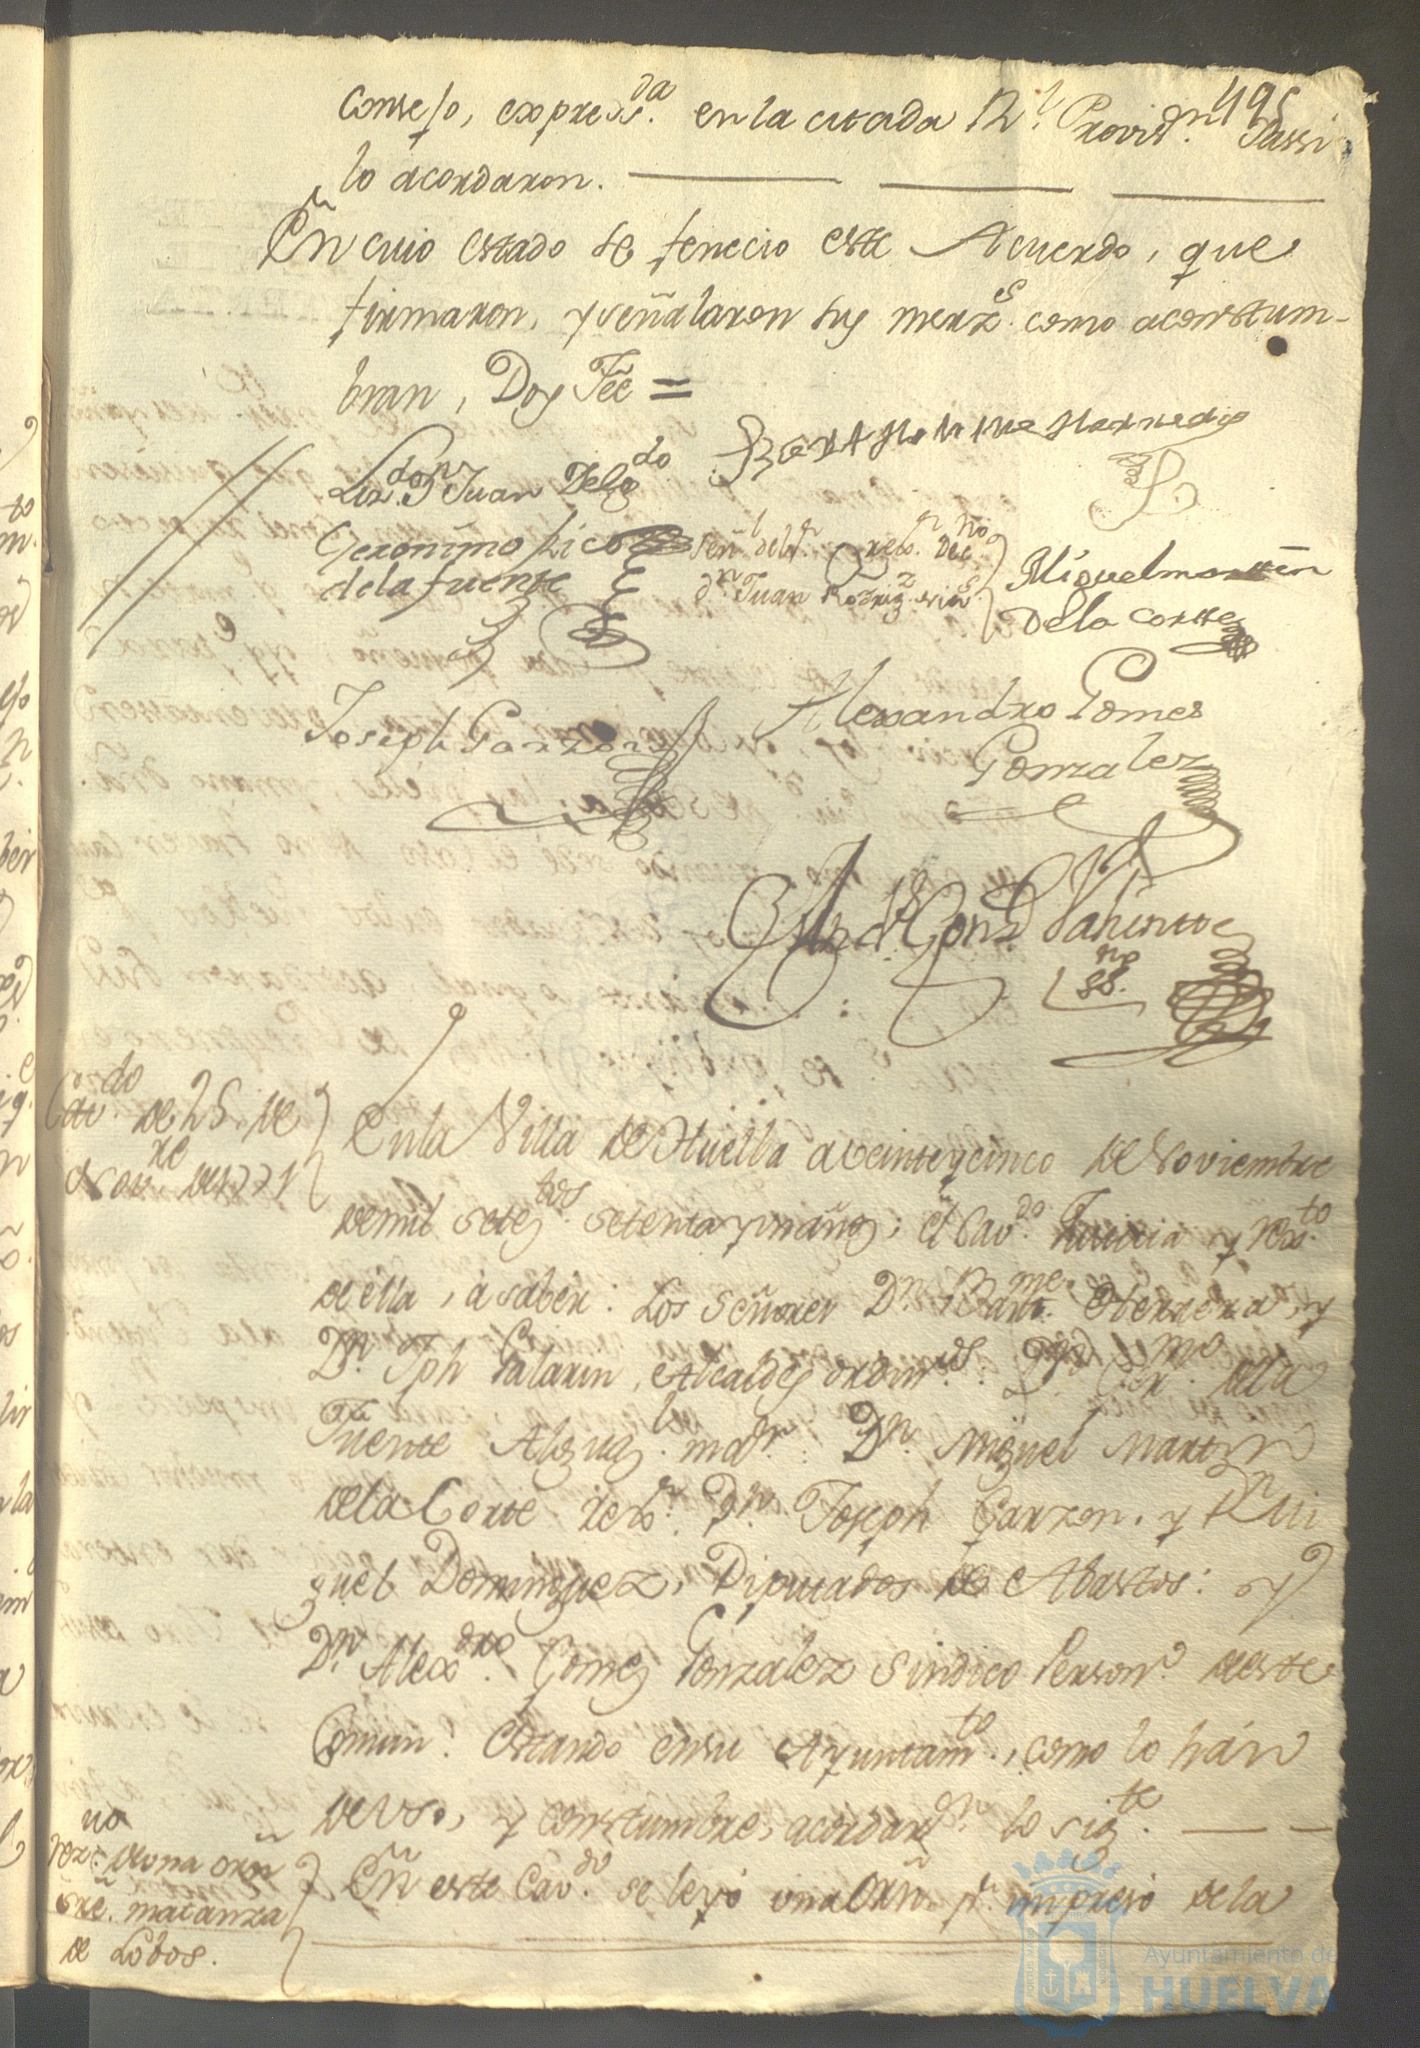 495
Consejo, expresda. en la citada Rl. Provisn. Yassi
lo acordaron.
En cuio estado se fenecio este Acuerdo, que
firmaron, y señalaron sus merzs. como acostum-
bran, Doy Feé =
Lizdo. Dn Juan Delgdo
Bartholome Herredia
Geronimo Rico
de la fuente
Señl. del Sr. Rexor. Decno
dn Juan Rodrigz
Miguel Martin
De la Corte
Joseph Garzon
Alexandro Gomes
Gonzalez
Andrs Gonz Valiente
SSno.
Cavdo. de 25. de
Novre. de 1771
En la Villa de Huelba a veinte y cinco de Noviembre
de mil setetos. setenta y un años; el Cavdo. Justicia y Rexto.
de ella, â saber: Los Señores Dn. Barme. Herrera, y
Dn. Jph Palarin, Alcaldes ordinros. Dn Germo. de la
Fuente Alguazl. mayr. Dn. Miguel Martin
de la Corte rexor. Dn. Joseph Garzon. y Dn Mi
guel Dominguez, Diputados de Abastos: y
Dn. Alexdro. Gomez Gonzalez Sindico Persono. de este
Comun. Estando en su Ayuntamto., como lo hán
de uso, y constumbre, acordaron. lo sigte.
Rezno. de una orñ
sre. matanza
de Lobos.
En este Cavdo. se leyó una Orñ pr. impreso de la
Ayuntamiento de
HUELVA